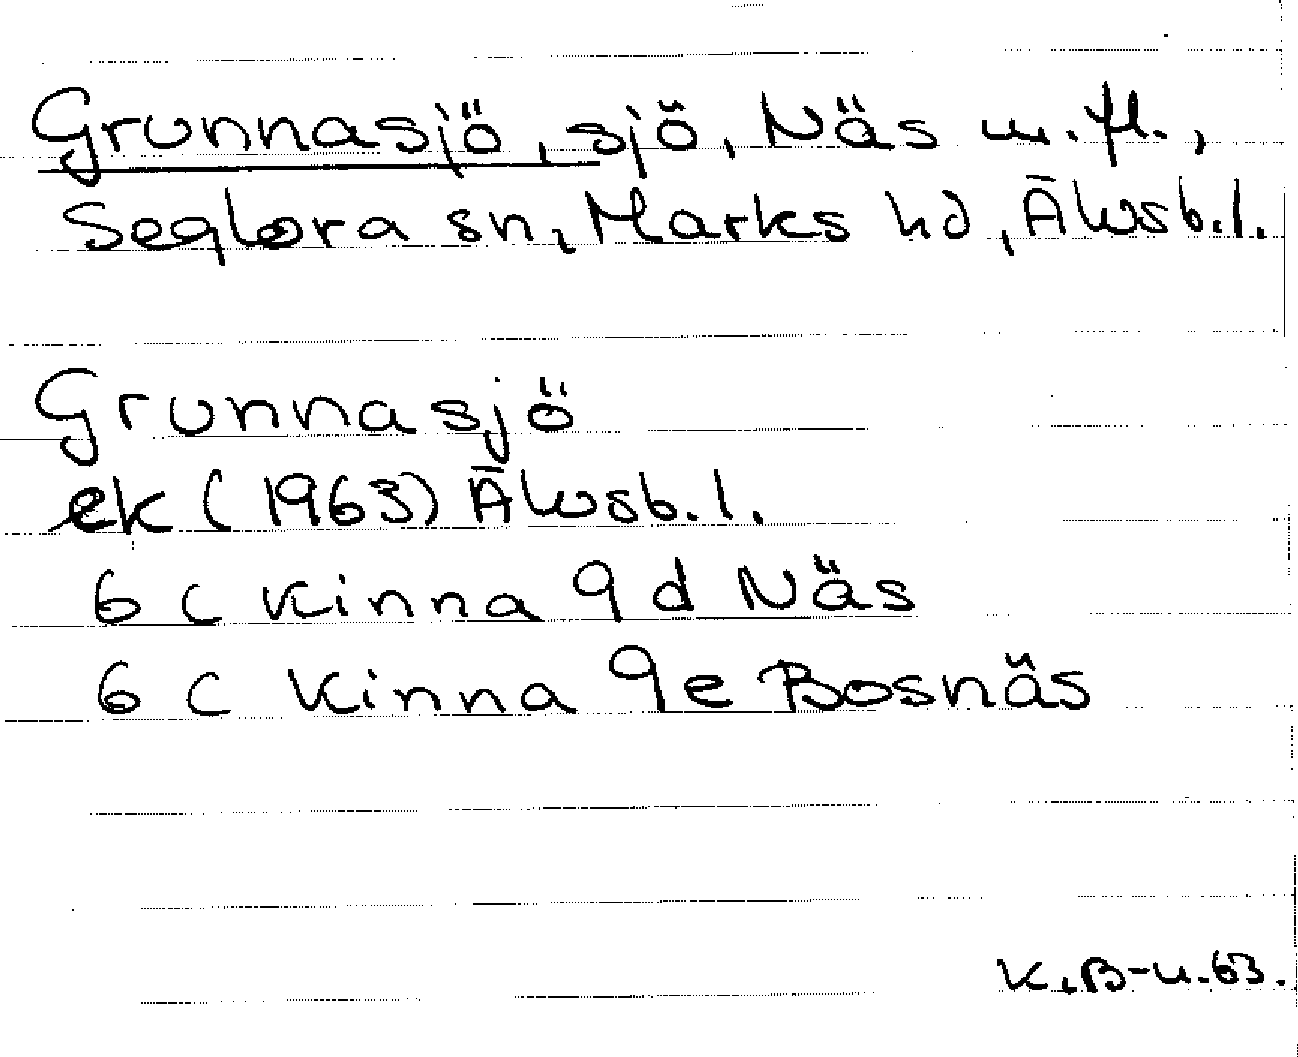 Grunnasjö, sjö, Näs m.fl.,
Seglora sn, Marks hd, Älvsb.l.
Grunnasjö
ek (1963) Älvsb.l.
6 C Kinna 9 d Näs
6 C Kinna 9 e Bosnäs
K.B-u.63.